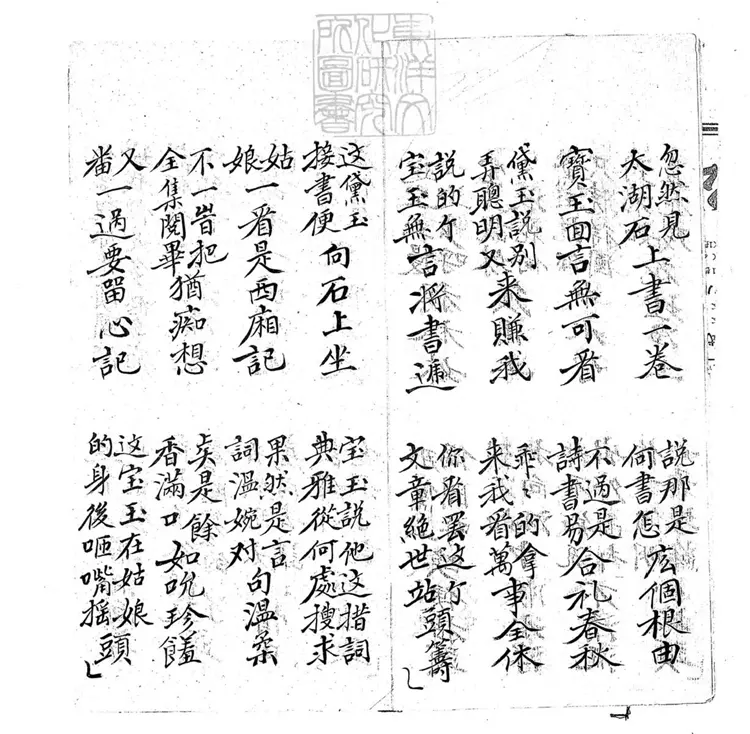 東洋文化研究所圖書
忽然見太湖石上書一卷
說那是何書怎広個根由
寶玉面言無可看
不過是詩書易合礼春秋
黛玉說别弄聰明又来賺我
乖〻的拿来我看萬事全休
說的个宝玉無言将書遞
你看罷这个文章絕世站頭籌
这黛玉接書便向石上坐
宝玉說他这措詞典雅從何處搜求
姑娘一看是西廂記
果然是言詞溫婉对句溫柔
不一旹把全集閱畢猶痴想
眞是餘香滿口如吮珍饈
又番一過要留心記
这宝玉在姑娘的身後咂嘴摇頭